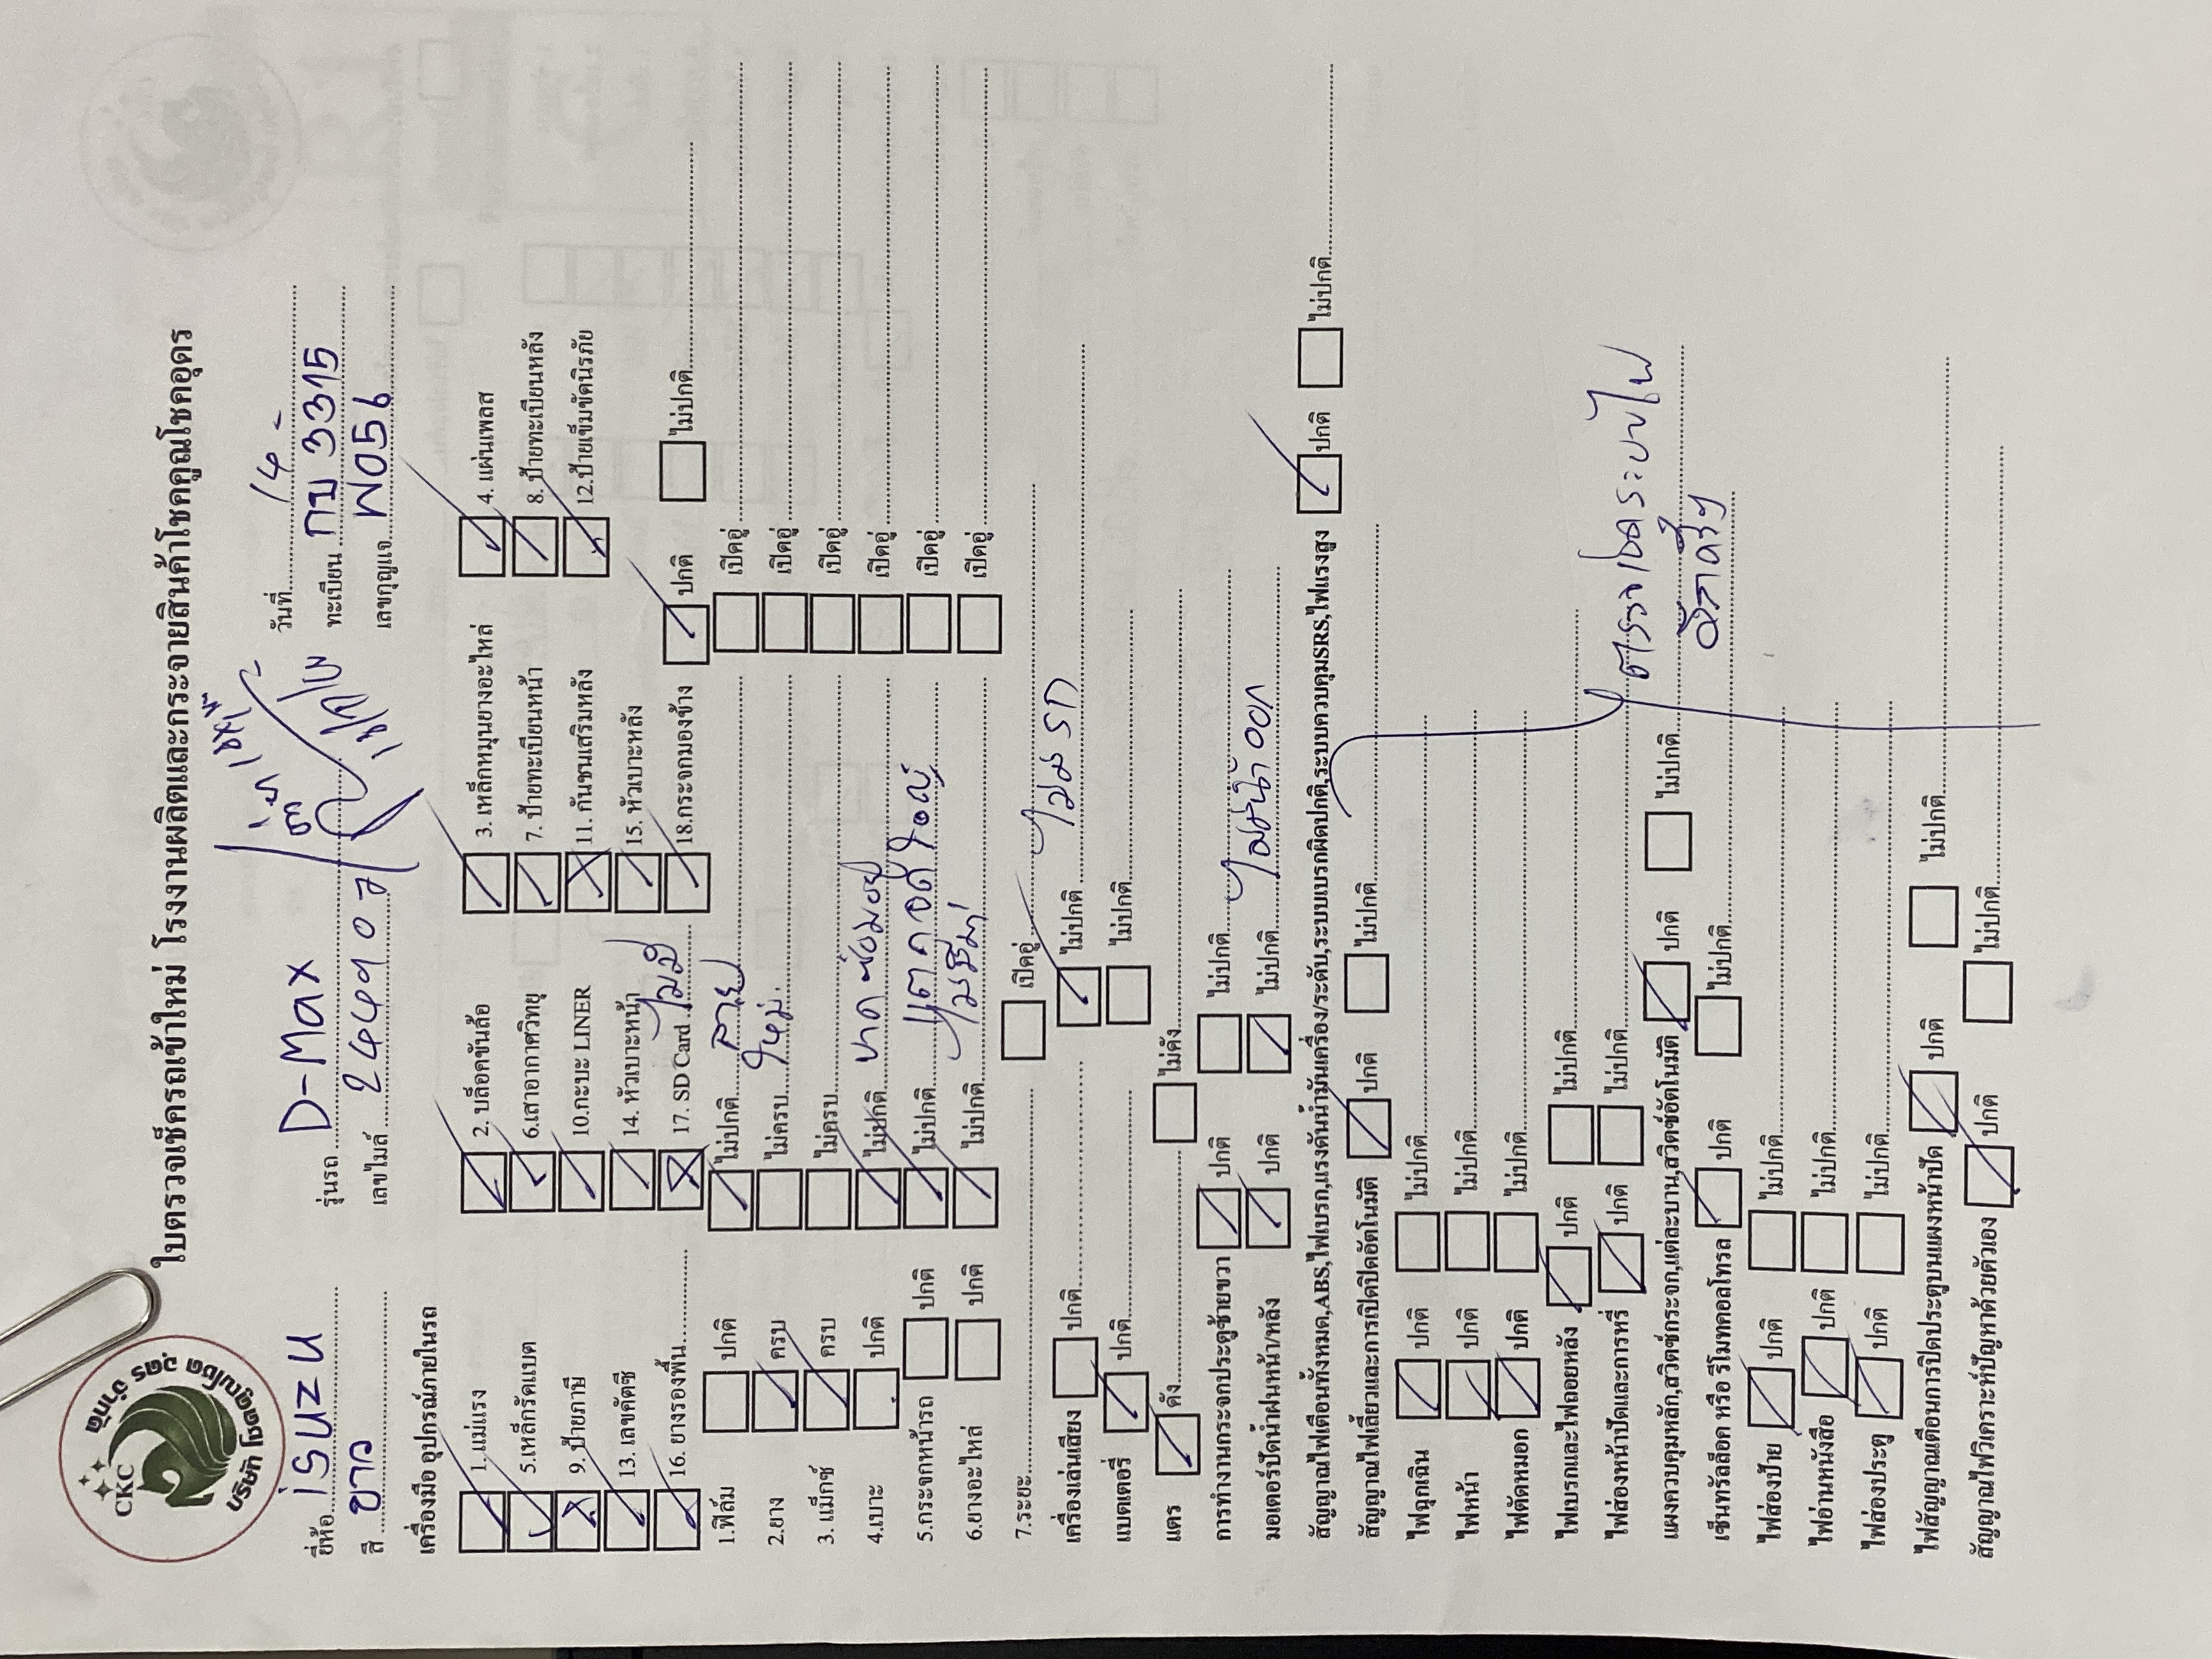 CKC
บริษัท โชคคูณโชค อุดร จำกัด
ใบตรวจเช็ครถเข้าใหม่ โรงงานผลิตและกระจายสินค้าโชคคูณโชคอุดร
ยี่ห้อ isuzu รุ่นรถ D-Max วันที่ 14
สี ขาว เลขไมล์ ทะเบียน กบ 3315
เลขกุญแจ W056
เครื่องมือ อุปกรณ์ภายในรถ
1.แม่แรง 2. บล็อคขันล้อ 3. เหล็กหมุนยางอะไหล่ 4. แผ่นเพลส
5.เหล็กรัดแบต 6.เสาอากาศวิทยุ 7. ป้ายทะเบียนหน้า 8. ป้ายทะเบียนหลัง
9. ป้ายภาษี 10.กะบะ LINER 11. กันชนเสริมหลัง 12.ป้ายเข็มขัดนิรภัย
13. เลขคัตซี 14. หัวเบาะหน้า 15. หัวเบาะหลัง
16. ยางรองพื้น 17. SD Card ไม่มี 18.กระจกมองข้าง ปกติ ไม่ปกติ
1.ฟิล์ม ปกติ ไม่ปกติ เปิดอู่
2.ยาง ครบ ไม่ครบ ใหม่ เปิดอู่
3. แม็กซ์ ครบ ไม่ครบ เปิดอู่
4.เบาะ ปกติ ไม่ปกติ เปิดอู่
5.กระจกหน้ารถ ปกติ ไม่ปกติ เปิดอู่
6.ยางอะไหล่ ปกติ ไม่ปกติ เปิดอู่
7.ระยะ เปิดอู่
เครื่องเล่นเสียง ปกติ ไม่ปกติ
แบตเตอรี่ ปกติ ไม่ปกติ
แตร ดัง ไม่ดัง
การทำงานกระจกประตูซ้ายขวา ปกติ ไม่ปกติ
มอเตอร์ปัดน้ำฝนหน้า/หลัง ปกติ ไม่ปกติ
สัญญาณไฟเตือนทั้งหมด,ABS,ไฟเบรก,แรงดันน้ำมันเครื่อง/ระดับ,ระบบเบรกผิดปกติ,ระบบควบคุมSRS,ไฟแรงสูง ปกติ ไม่ปกติ
สัญญาณไฟเลี้ยวและการเปิดปิดอัตโนมัติ ปกติ ไม่ปกติ
ไฟฉุกเฉิน ปกติ ไม่ปกติ
ไฟหน้า ปกติ ไม่ปกติ
ไฟตัดหมอก ปกติ ไม่ปกติ
ไฟเบรกและไฟถอยหลัง ปกติ ไม่ปกติ
ไฟส่องหน้าปัดและการหรี่ ปกติ ไม่ปกติ
แผงควบคุมหลัก,สวิตซ์กระจก,แต่ละบาน,สวิตซ์อัตโนมัติ ปกติ ไม่ปกติ
เซ็นทรัลล็อค หรือ รีโมทคอลโทรล ปกติ ไม่ปกติ
ไฟส่องป้าย ปกติ ไม่ปกติ
ไฟอ่านหนังสือ ปกติ ไม่ปกติ
ไฟส่องประตู ปกติ ไม่ปกติ
ไฟสัญญาณเตือนการปิดประตูบนแผงหน้าปัด ปกติ ไม่ปกติ
สัญญาณไฟวิเคราะห์ปัญหาด้วยตัวเอง ปกติ ไม่ปกติ